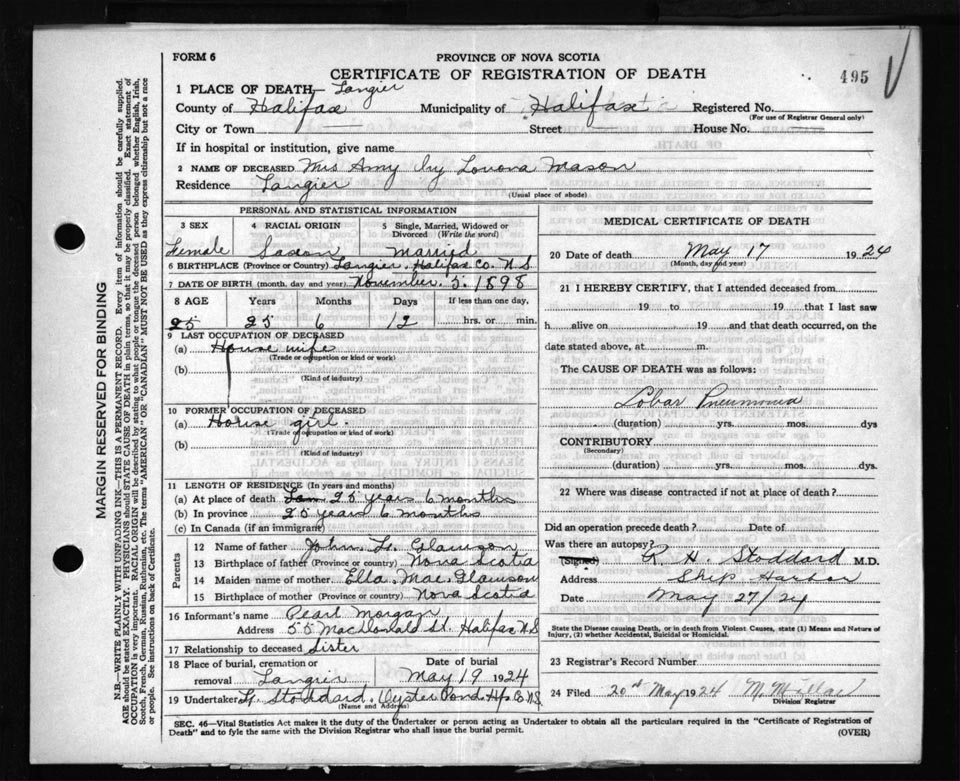 FORM 6
PROVINCE OF NOVA SCOTIA
CERTIFICATE OF REGISTRATION OF DEATH
495
1 PLACE OF DEATH— Tangier
County of Halifax Municipality of Halifax Registered No.
(For use of Registrar General only)
City or Town Street House No.
If in hospital or institution, give name
2 NAME OF DECEASED Mrs Amy Ivy Mason
Residence Tangier
(Usual place of abode)
PERSONAL AND STATISTICAL INFORMATION
3 SEX 4 RACIAL ORIGIN 5 Single, Married, Widowed or Divorced (Write the word)
Female Saxon Married
6 BIRTHPLACE (Province or Country) Tangier, Halifax Co. N.S
7 DATE OF BIRTH (month, day and year) November. 5. 1898
8 AGE Years Months Days If less than one day,
25 25 6 12 hrs. or min.
9 LAST OCCUPATION OF DECEASED
(a) House wife
(Trade or occupation or kind of work)
(b)
(Kind of industry)
10 FORMER OCCUPATION OF DECEASED
(a) House girl.
(Trade or occupation or kind of work)
(b)
(Kind of industry)
11 LENGTH OF RESIDENCE (In years and months)
(a) At place of death 25 years 6 months
(b) In province 25 years 6 months
(c) In Canada (if an immigrant)
Parents
12 Name of father John
13 Birthplace of father (Province or Country) Nova Scotia
14 Maiden name of mother Ella Mae
15 Birthplace of mother (Province or country) Nova Scotia
16 Informant's name Pearl Morgan
Address 55 MacDonald St. Halifax N.S
17 Relationship to deceased Sister
18 Place of burial, cremation or removal Tangier
Date of burial May 19 1924
19 Undertaker Stoddard. Oyster Pond. Hfx Co N.S.
(Name and Address)
MEDICAL CERTIFICATE OF DEATH
20 Date of death May 17 1924
(Month, day and year)
21 I HEREBY CERTIFY, that I attended deceased from
19 to 19 that I last saw
h alive on 19 and that death occurred, on the
date stated above, at m.
The CAUSE OF DEATH was as follows:
Lobar Pneumonia
(duration) yrs. mos. dys
CONTRIBUTORY
(Secondary)
(duration) yrs. mos. dys.
22 Where was disease contracted if not at place of death?
Did an operation precede death? Date of
Was there an autopsy?
(Signed) R. H. Stoddard M.D.
Address Ship Harbor
Date May 27/24
State the Disease causing Death, or in deaths from Violent Causes, state (1) Means and Nature of
Injury, (2) whether Accidental, Suicidal or Homicidal.
23 Registrar's Record Number
24 Filed 20th May 1924 M. Millar
Division Registrar
SEC. 46—Vital Statistics Act makes it the duty of the Undertaker or person acting as Undertaker to obtain all the particulars required in the "Certificate of Registration of
Death" and to fyle the same with the Division Registrar who shall issue the burial permit.
(OVER)
MARGIN RESERVED FOR BINDING
N.B.—WRITE PLAINLY WITH UNFADING INK—THIS IS A PERMANENT RECORD. Every item of information should be carefully supplied.
AGE should be stated EXACTLY. PHYSICIANS should STATE CAUSE OF DEATH in plain terms, so that it may be properly classified. Exact statement of
OCCUPATION is very important. RACIAL ORIGIN will be described by stating to what people or tongue the deceased person belonged whether English, Irish,
Scotch, French, German, Russian, Ruthenian, etc. The terms "AMERICAN" or "CANADIAN" MUST NOT BE USED as they express citizenship but not a race
or people. See instructions on back of Certificate.